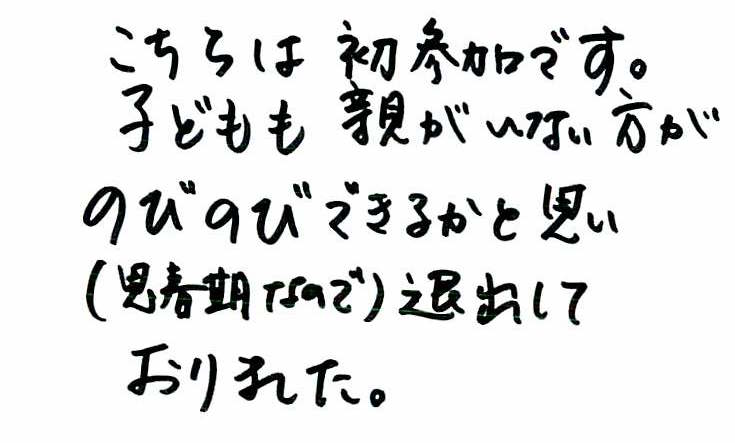 こちらは初参加です。
子どもも親がいない方が
のびのびできるかと思い
(思春期なので)退出して
おりました。